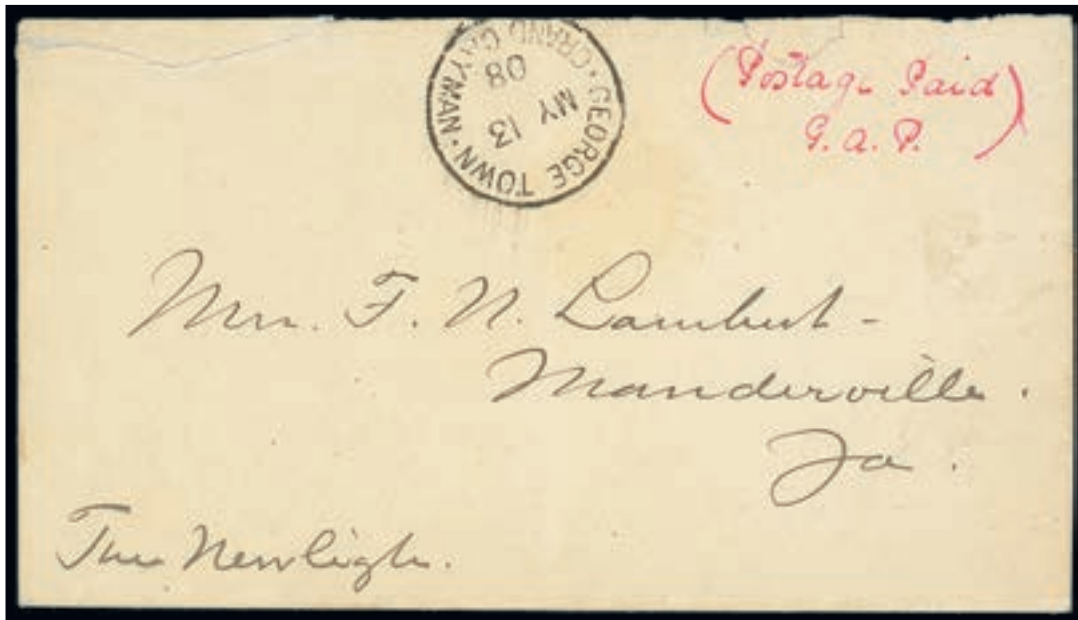 GEORGE TOWN · GRAND CAYMAN ·
MY 13
08
(Postage Paid)
G.A.P.
Mrs. F. N. Lambert -
Manderville.
Ja.